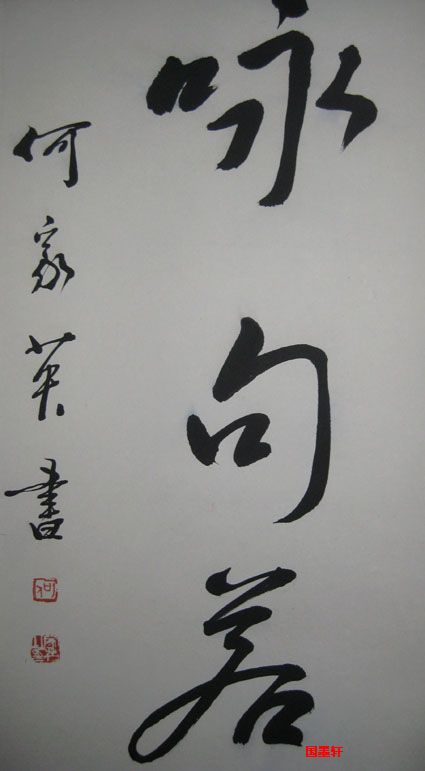 咏句若
何家英書
国墨轩